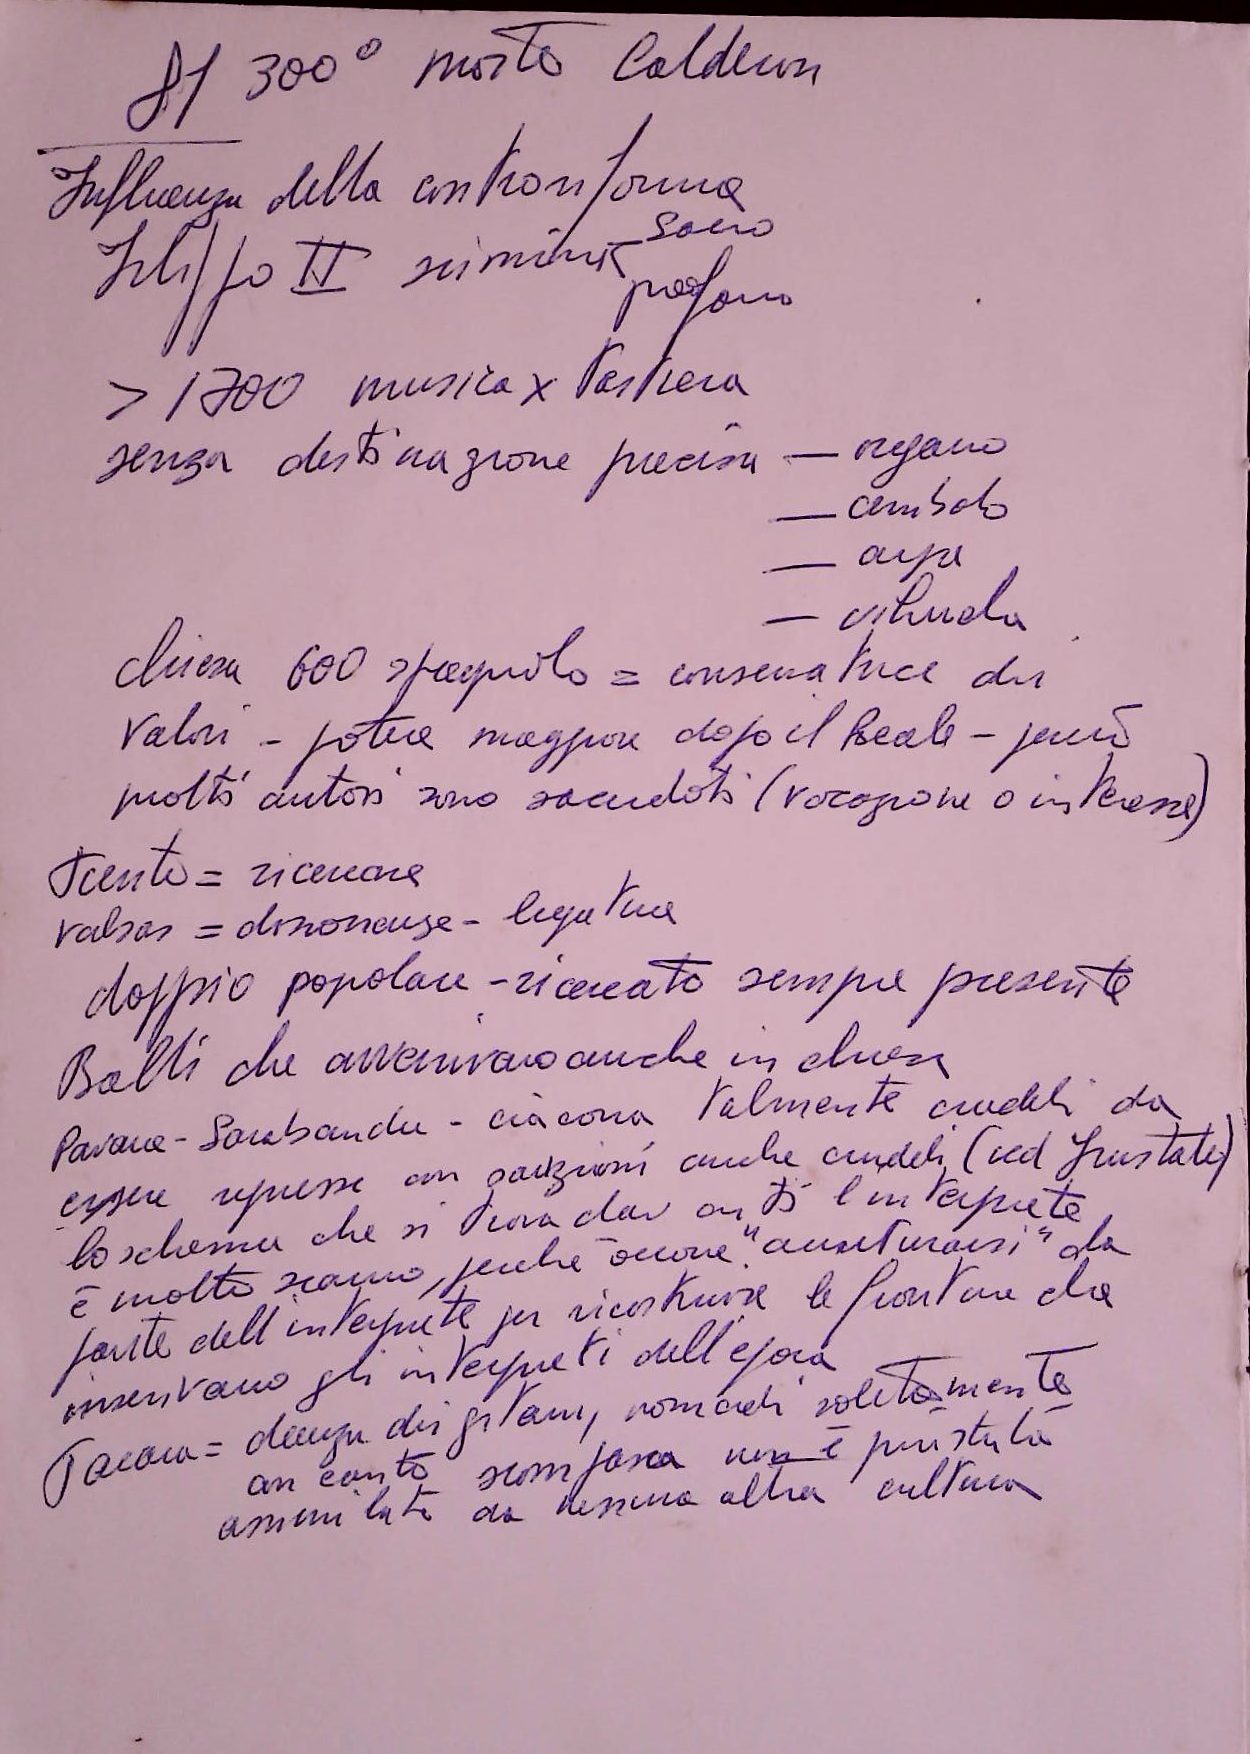 81 300° morte Calderon
Influenza della controriforma
Filippo II sacro
profano
> 1700 musica x tastiera
senza destinazione precisa — organo
— cembalo
— arpa
— vihuela
chiesa 600 spagnolo = conservatrice dei
valori - potere maggiore dopo il Reale - perciò
molti autori sono sacerdoti (vocazione o interesse)
Tiento = ricercare
Falsas = dissonanze - legature
doppio popolare - ricercato sempre presente
Balli che avvenivano anche in chiesa
Pavane - Sarabande - ciacona talmente crudeli da
essere represse con sanzioni anche crudeli (ved frustate)
lo schema che si trova davanti l'interprete
è molto scarno, perchè occorre " " da
parte dell'interprete per ricostruire le fioriture che
inserivano gli interpreti dell'epoca
Jacara = danza dei gitani, nomadi solitamente
con canto scomparsa non è più stata
assimilata da nessuna altra cultura